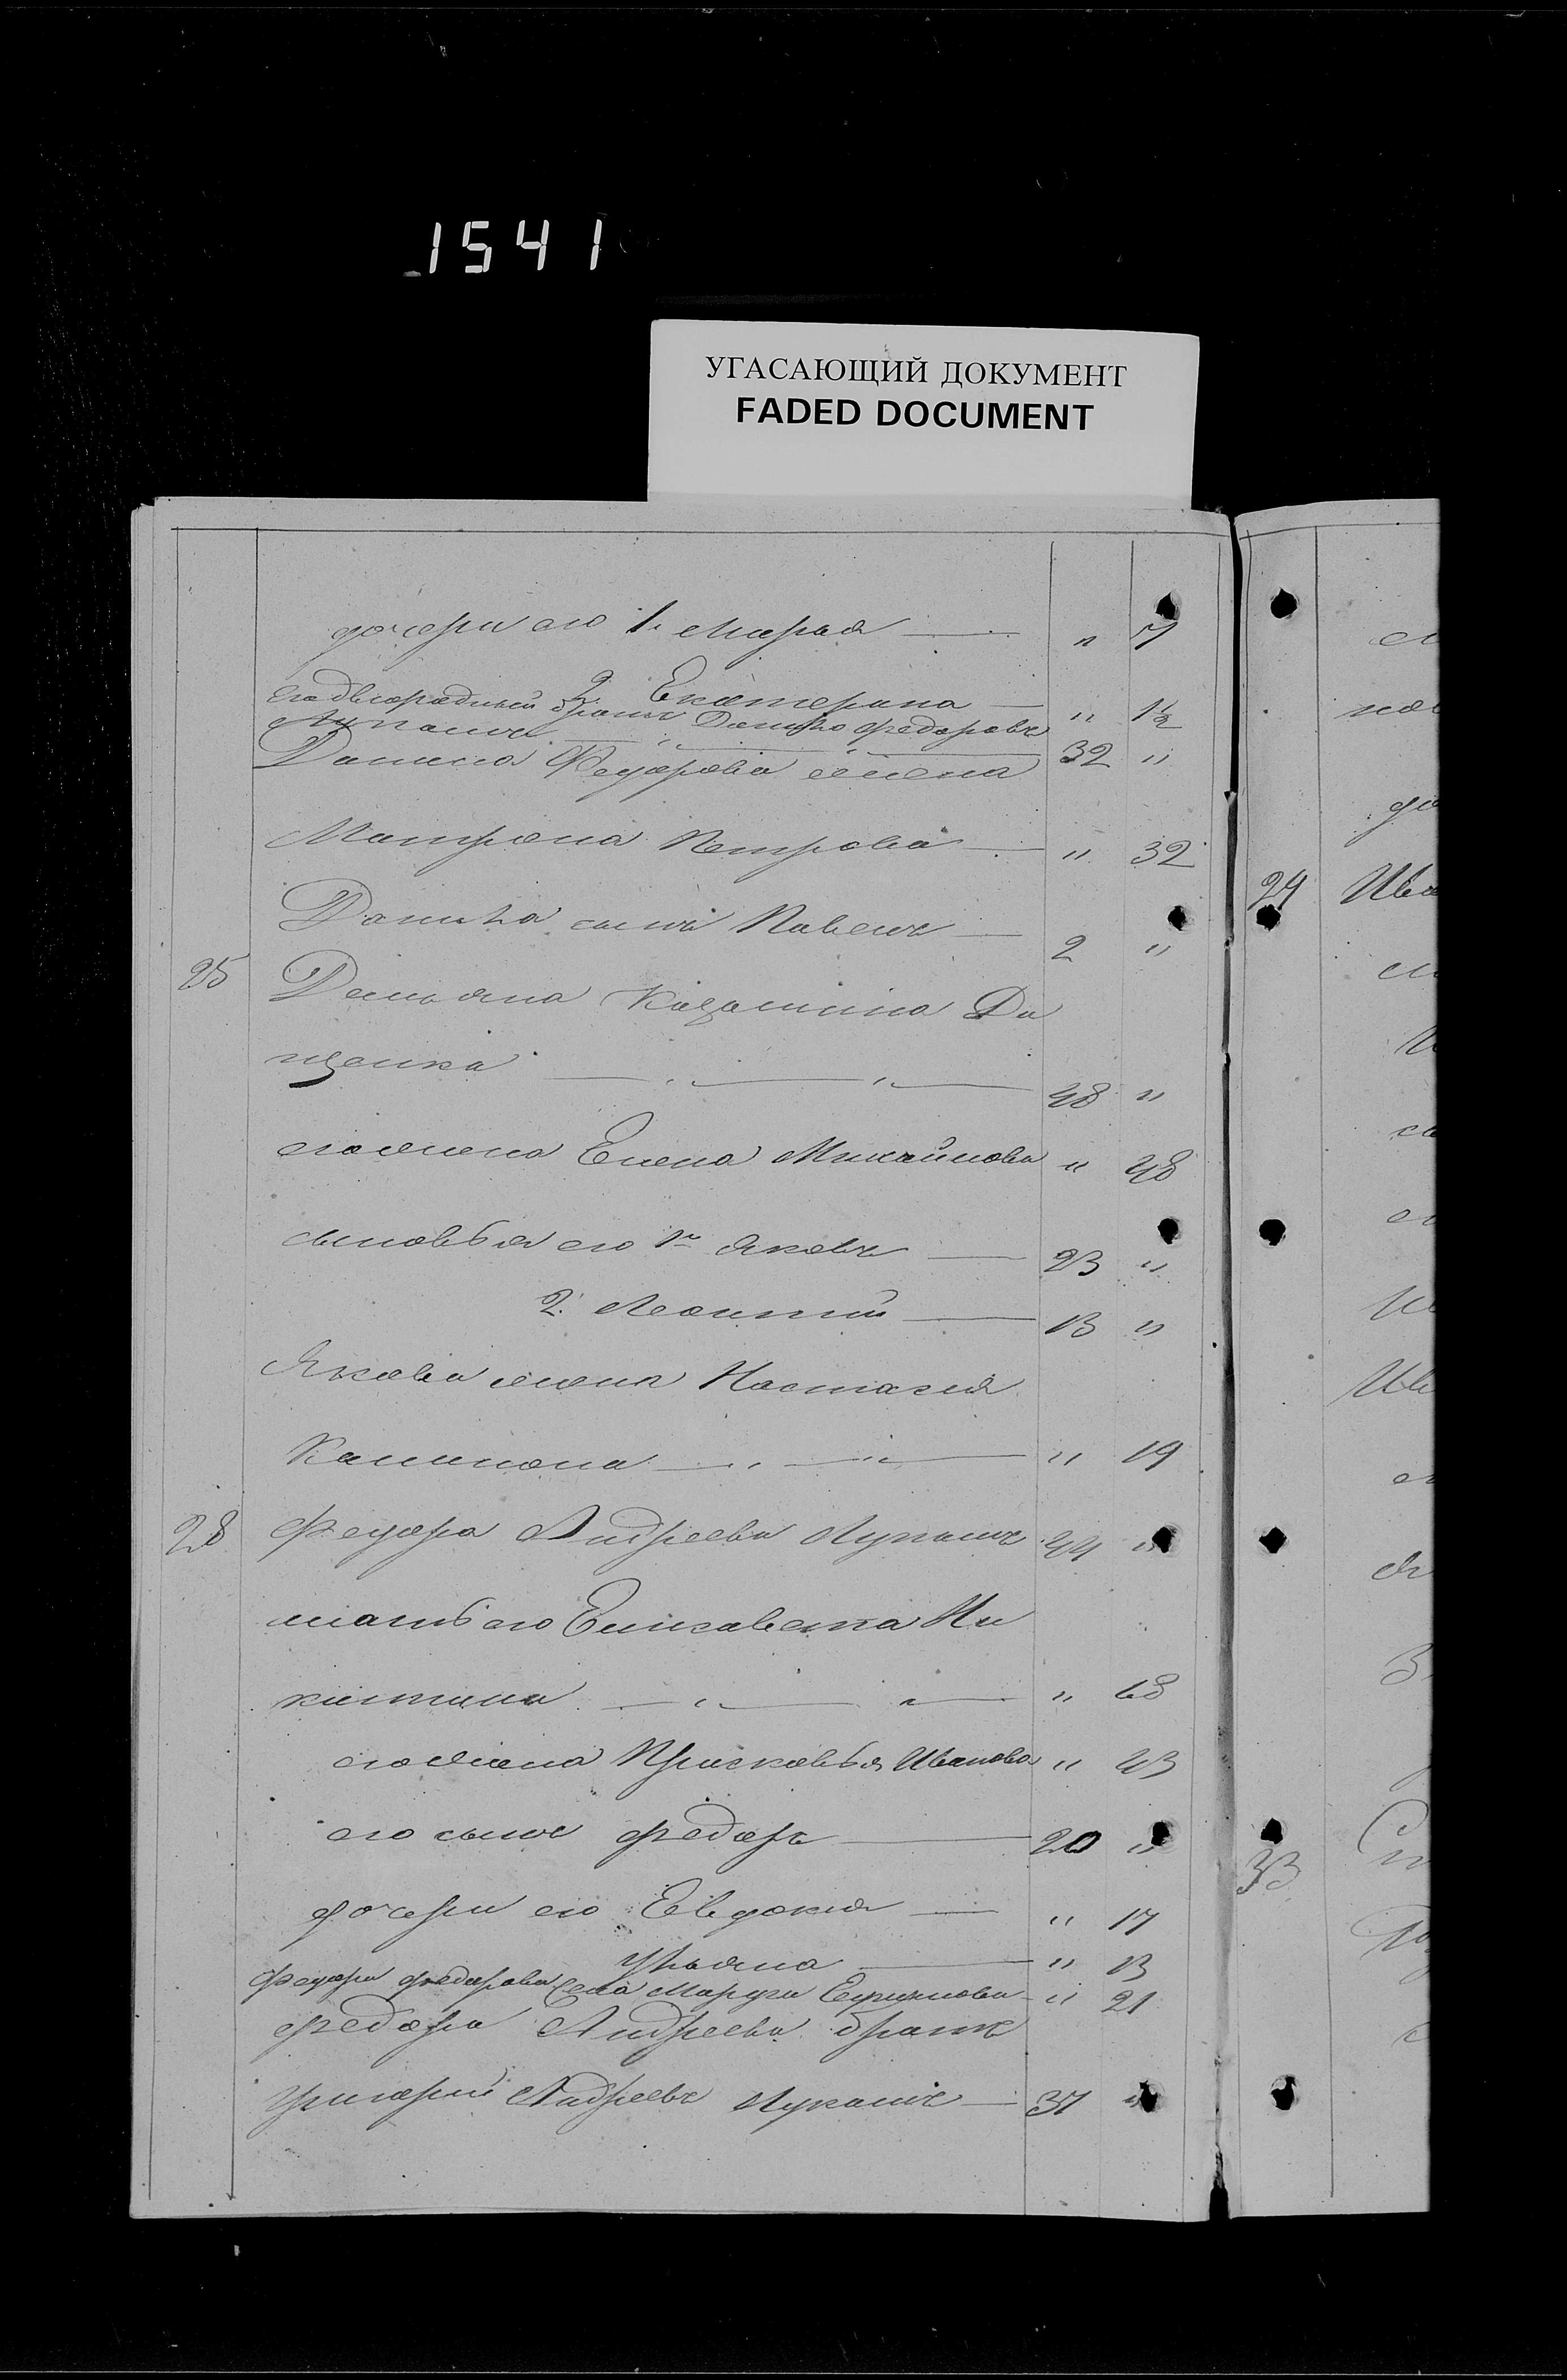 1541
УГАСАЮЩИЙ ДОКУМЕНТ
FADED DOCUMENT
дочери его 1. Марья — " 7
2. Екатерина — " 1½
его двоюродный братъ Данило Федоровъ
Лупашъ — 32 "
Данила Федорова жена
Матрона Петрова — " 32
Данила сынъ Павелъ — 2 "
25 Демьяна Да
щенка — 48 "
его жена Елена Михайлова " 48
сыновья его 1й Яковъ — 23 "
2. Леонтий — 13 "
Якова жена Настасия
— " 19
28 Федора Андреева Лупашъ 44 "
мать его Елисавета Ни
китина — " 68
его жена Прасковья Иванова " 43
его сынъ Федоръ — 20 "
дочери его Евдокия — " 17
Ульяна — " 13
Федора Федорова жена " 21
Федора Андреева братъ
Григорий Андреевъ Лупашъ — 37 "
29 Ива
33